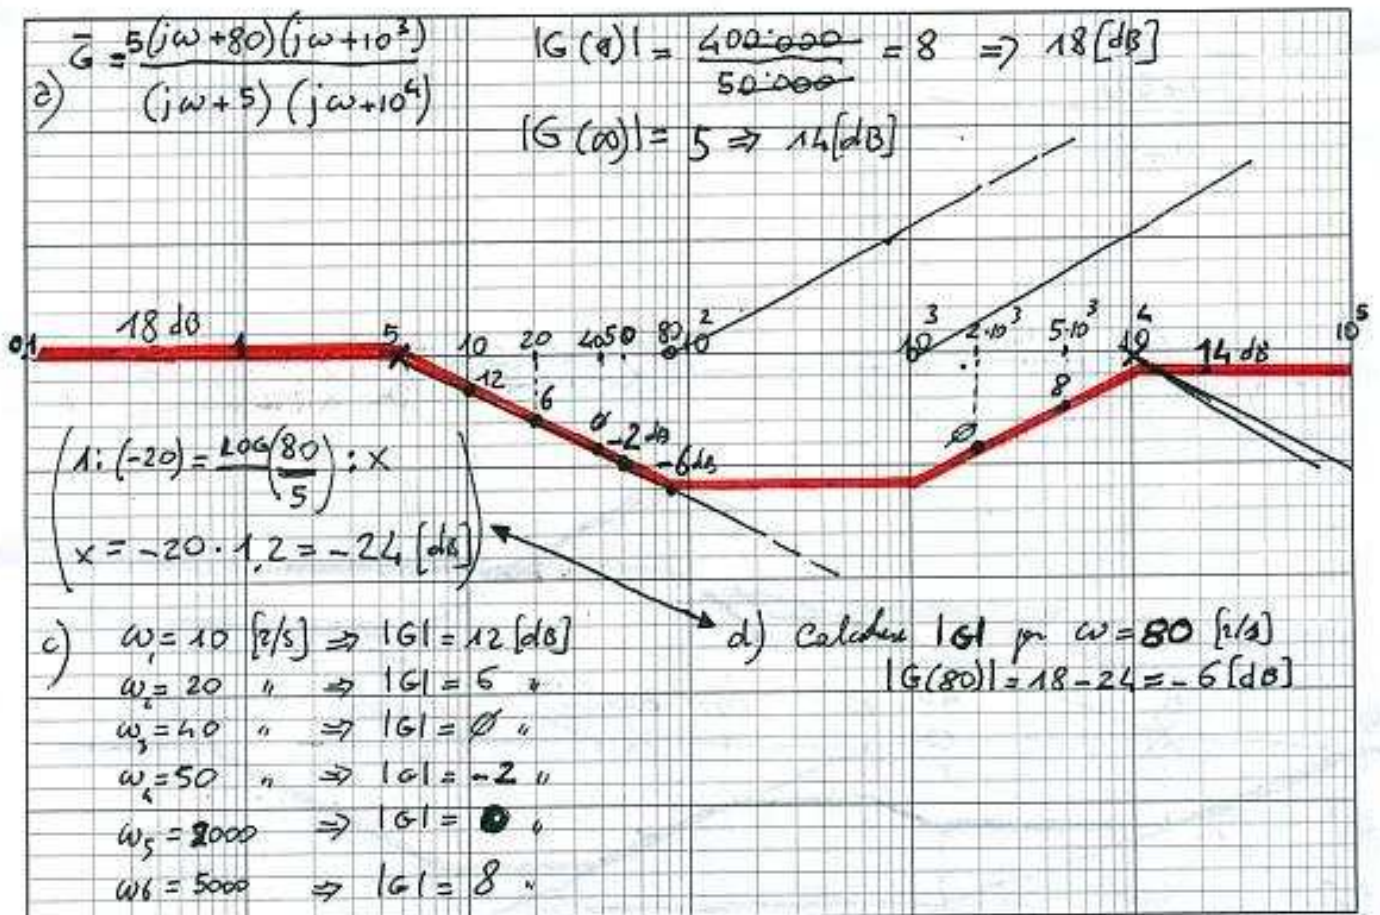 a) G̅ = 5(jω+80)(jω+10³) / (jω+5)(jω+10⁴)
|G(0)| = 400.000 / 50.000 = 8 ⇒ 18 [dB]
|G(∞)| = 5 ⇒ 14 [dB]
18 dB
0,1 1 5 10 20 40 50 80 10² 10³ 2·10³ 5·10³ 10⁴ 10⁵
14 dB
12
6
∅
-2 dB
-6 dB
∅
8
1 : (-20) = LOG(80/5) : x
x = -20 · 1,2 = -24 [dB]
c) ω₁ = 10 [r/s] ⇒ |G| = 12 [dB]
ω₂ = 20 " ⇒ |G| = 6 "
ω₃ = 40 " ⇒ |G| = ∅ "
ω₄ = 50 " ⇒ |G| = -2 "
ω₅ = 2000 ⇒ |G| = 0 "
ω6 = 5000 ⇒ |G| = 8 "
d) |G| ω = 80 [r/s]
|G(80)| = 18 - 24 = -6 [dB]